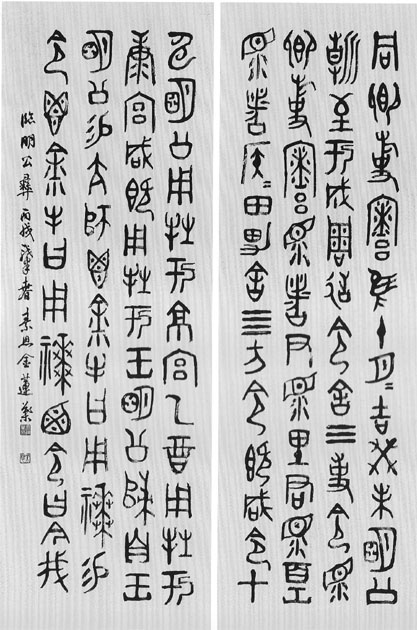 同卿事寮隹十月吉癸未明公
朝至于成周𢓊令舍三事令眔
卿事寮眔者尹眔里君眔百工
眔者侯侯田男舍四方令既咸令甲
申明公用牲于京宮乙酉用牲于
康宮咸既用牲于王明公歸自王
明公易亢師鬯金牛曰用易
令鬯金牛曰用廼令曰今我
臨明公彝 丙戌 金蓮